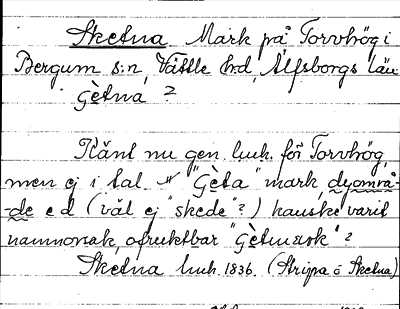 Sketna Mark på Torvhög i
Bergum s:n, Vättle hrd, Älfsborgs län
Gètna ?
Känt nu gen. luk. för Torvhög,
men ej i tal. "Gèta" mark dyområ-
-de e d (väl ej "skede"?) kanske varit
namnorsak, ofruktbar "Gètmark"?
Sketna luk. 1836. (Stripa o Sketna)